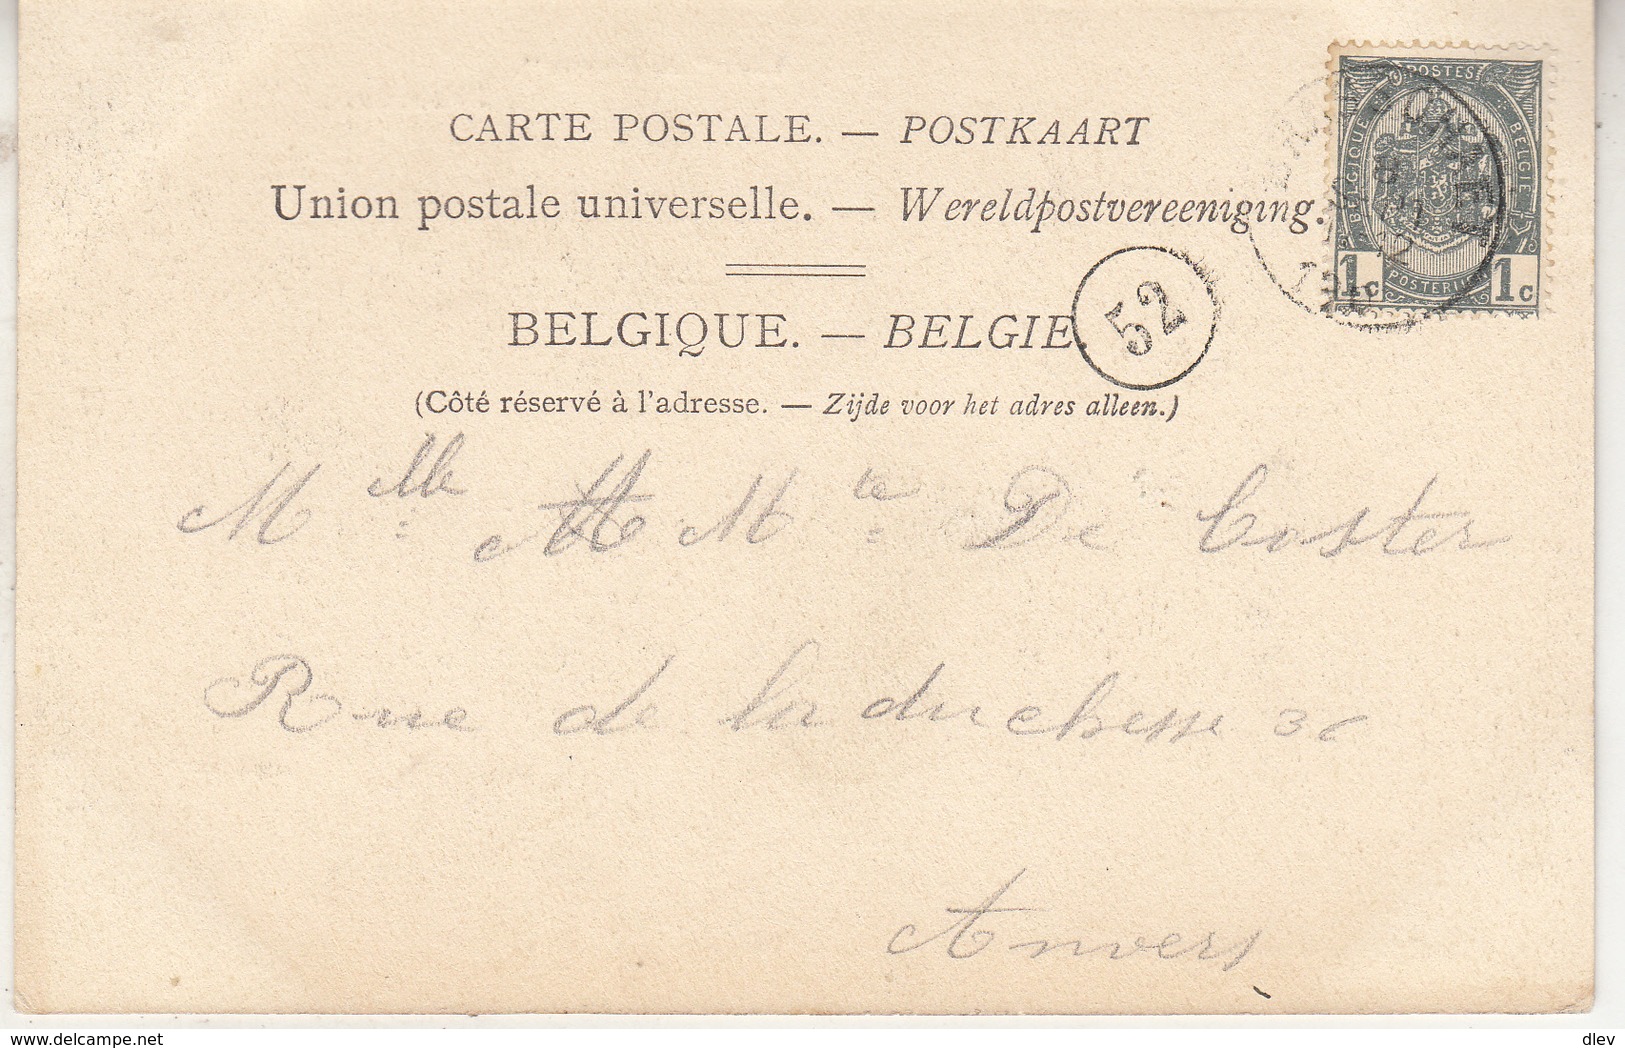 CARTE POSTALE. — POSTKAART
Union postale universelle. — Wereldpostvereeniging.
BELGIQUE. — BELGIE.
(Côté réservé à l'adresse. — Zijde voor het adres alleen.)
POSTES
BELGIQUE
BELGIË
1c
1c
POSTERIJEN
52
Mlle M Mte De Coster
Rue de la duchesse 36
Anvers
https://www.delcampe.net
dlev